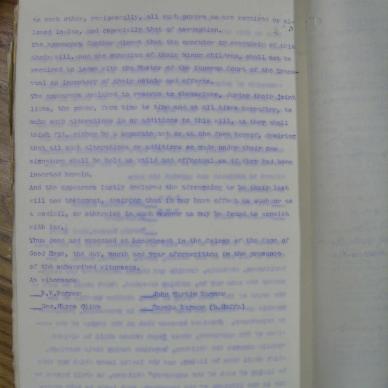 to each other, reciprocally, all such powers as are required or al-
lowed in law, and especially that of assumption.
The appearers further direct that the executor or executrix of this
their will, and the guardian of their minor children, shall not be
required to lodge with the Master of the Supreme Court of the
or inventory of their estate and effects.
The appearers declared to reserve to themselves, during their joint
lives, the power, from time to time and at all times hereafter, to
make such alterations in or additions to this will, as they shall
think fit, either by a separate act or at the foot hereof, desiring
that all such alterations or additions so made under their own
signature shall be held as valid and effectual as if they had been
inserted herein.
And the appearers lastly declared the foregoing to be their last
will and testament, desiring that it may have effect as such or as
a codicil, or otherwise in such manner as may be found to consist
with law.
Thus done and executed at in the Colony of the Cape of
Good Hope, the day, month and year aforewritten in the presence
of the subscribed witnesses.
As witnesses
John Martin